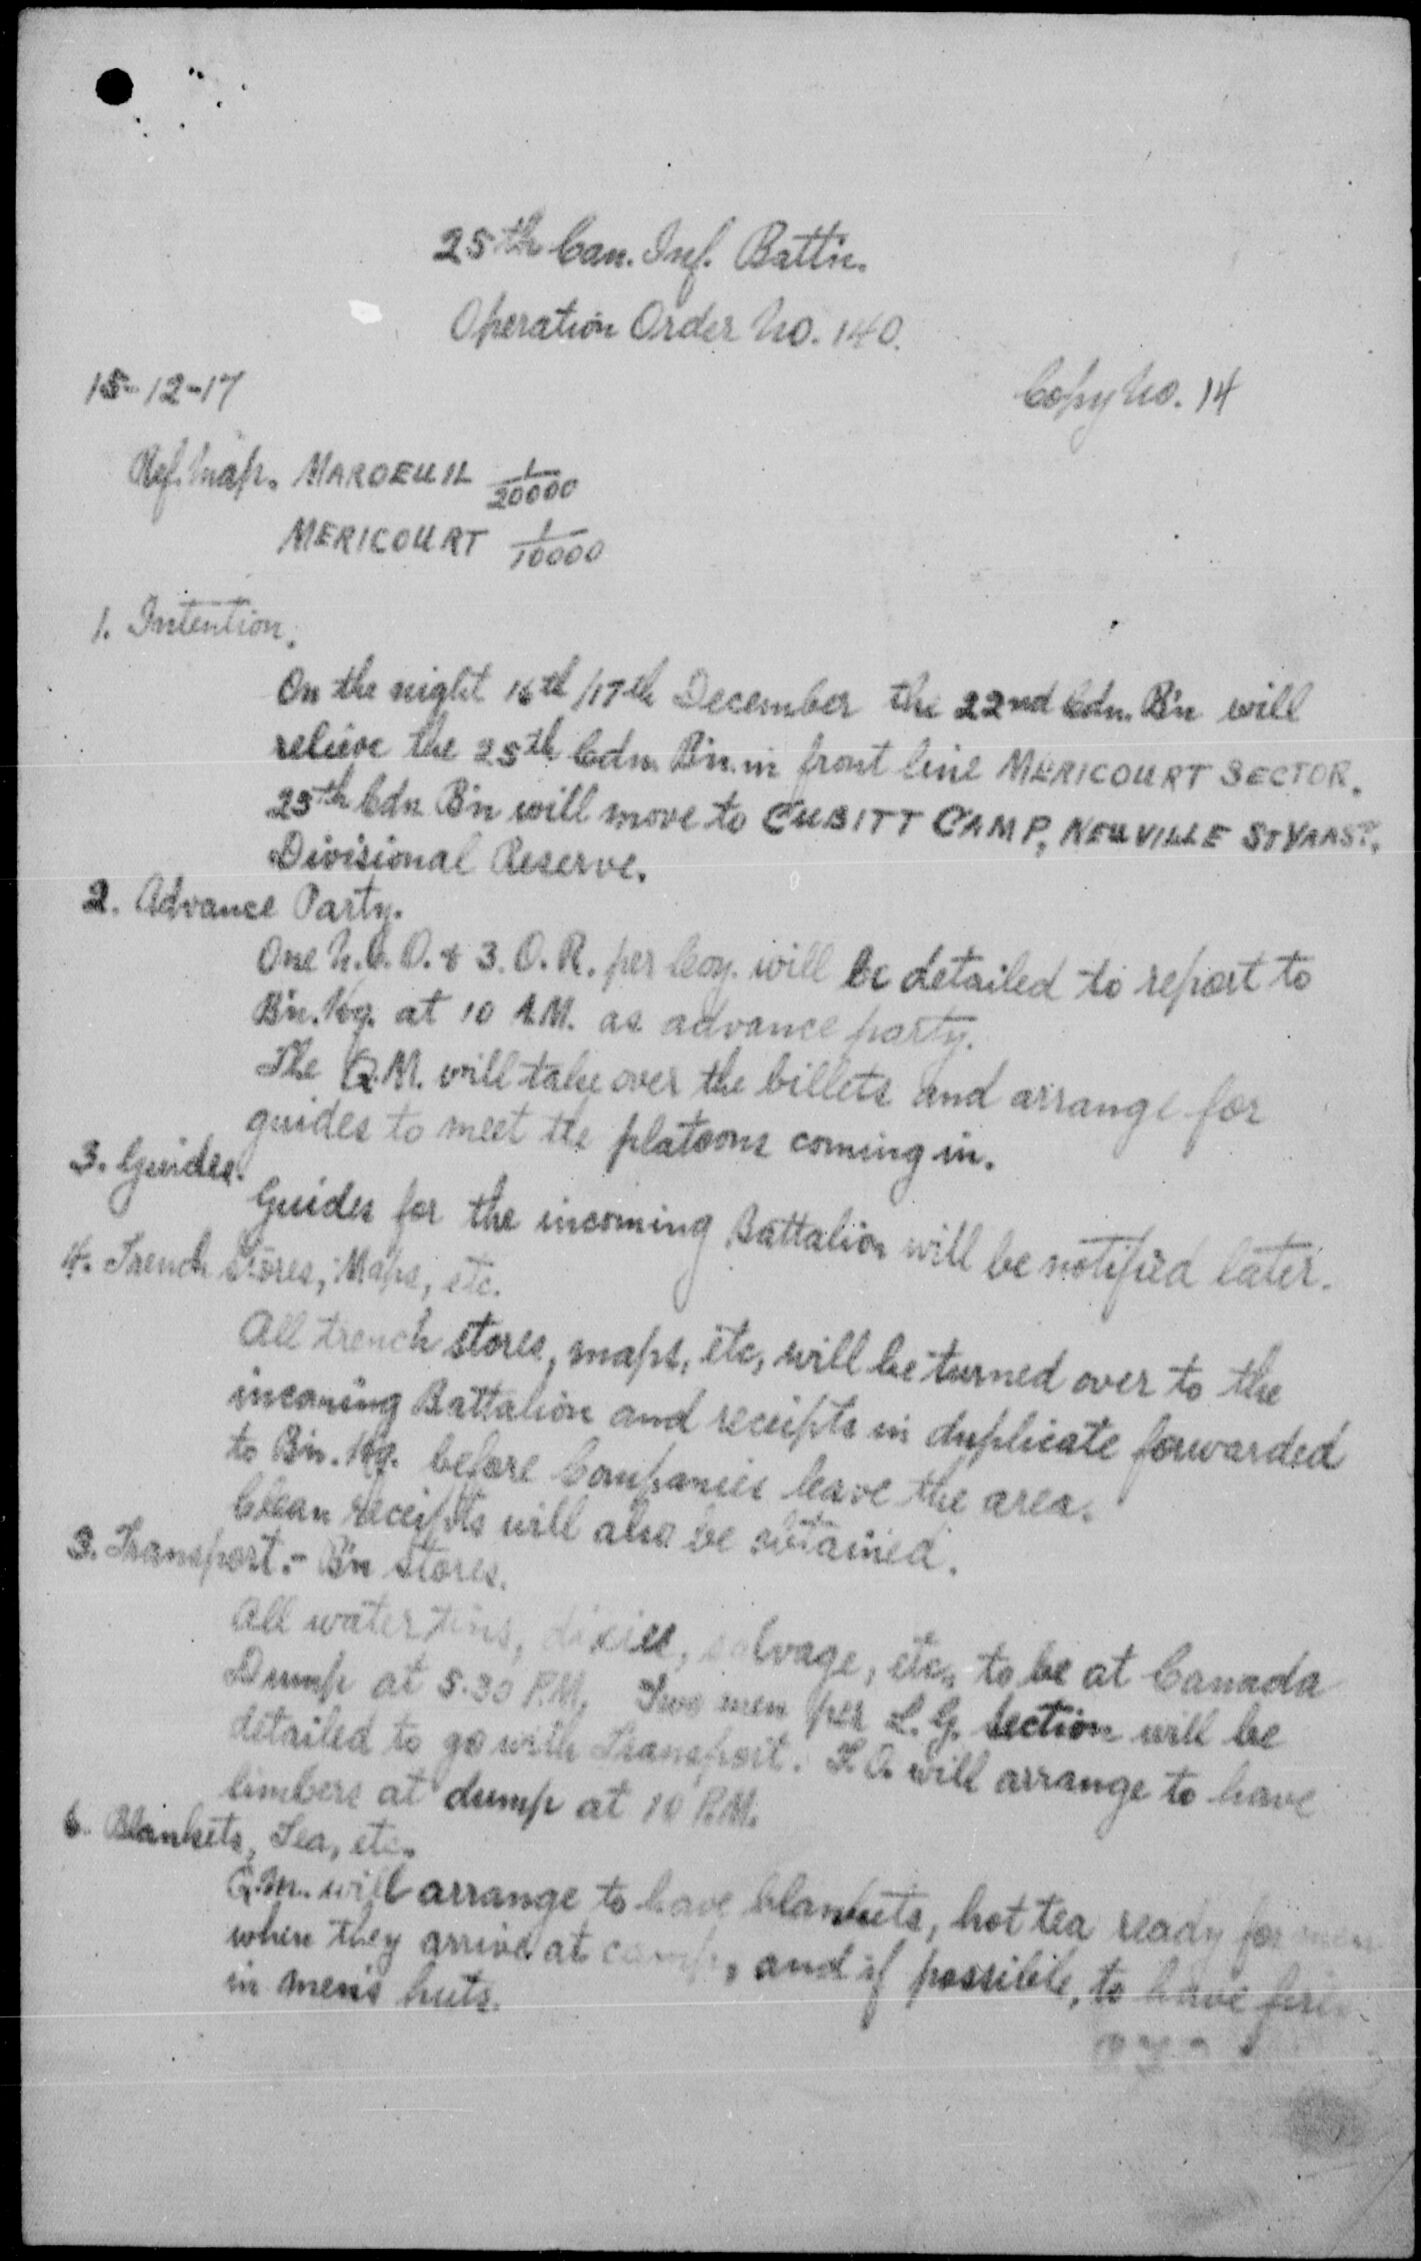 25th Can. Inf. Battn.
Operation Order No. 140.
15-12-17
Copy No. 14
Ref. Map. MAROEUIL 1/20000
MERICOURT 1/10000
1. Intention.
On the night 16th/17th December the 22nd Cdn. B'n will
relieve the 25th Cdn. B'n. in front line MERICOURT SECTOR.
25th Cdn B'n will move to CUBITT CAMP, NEUVILLE ST VAAST,
Divisional Reserve.
2. Advance Party.
One N.C.O. & 3. O.R. per Coy. will be detailed to report to
B'n. Hq. at 10 A.M. as advance party.
The Q.M. will take over the billets and arrange for
guides to meet the platoons coming in.
3. Guides.
Guides for the incoming Battalion will be notified later.
4. Trench Stores, Maps, etc.
All trench stores, maps, etc, will be turned over to the
incoming Battalion and receipts in duplicate forwarded
to B'n. Hq. before Companies leave the area.
Clean receipts will also be obtained.
5. Transport.- B'n Stores.
All water tins, dixies, salvage, etc, to be at Canada
Dump at 5.30 P.M. Two men per L.G. Section will be
detailed to go with Transport. T.O. will arrange to have
limbers at dump at 10 P.M.
6. Blankets, Tea, etc.
Q.M. will arrange to have blankets, hot tea ready for men
when they arrive at camp, and if possible, to have fires
in men's huts.